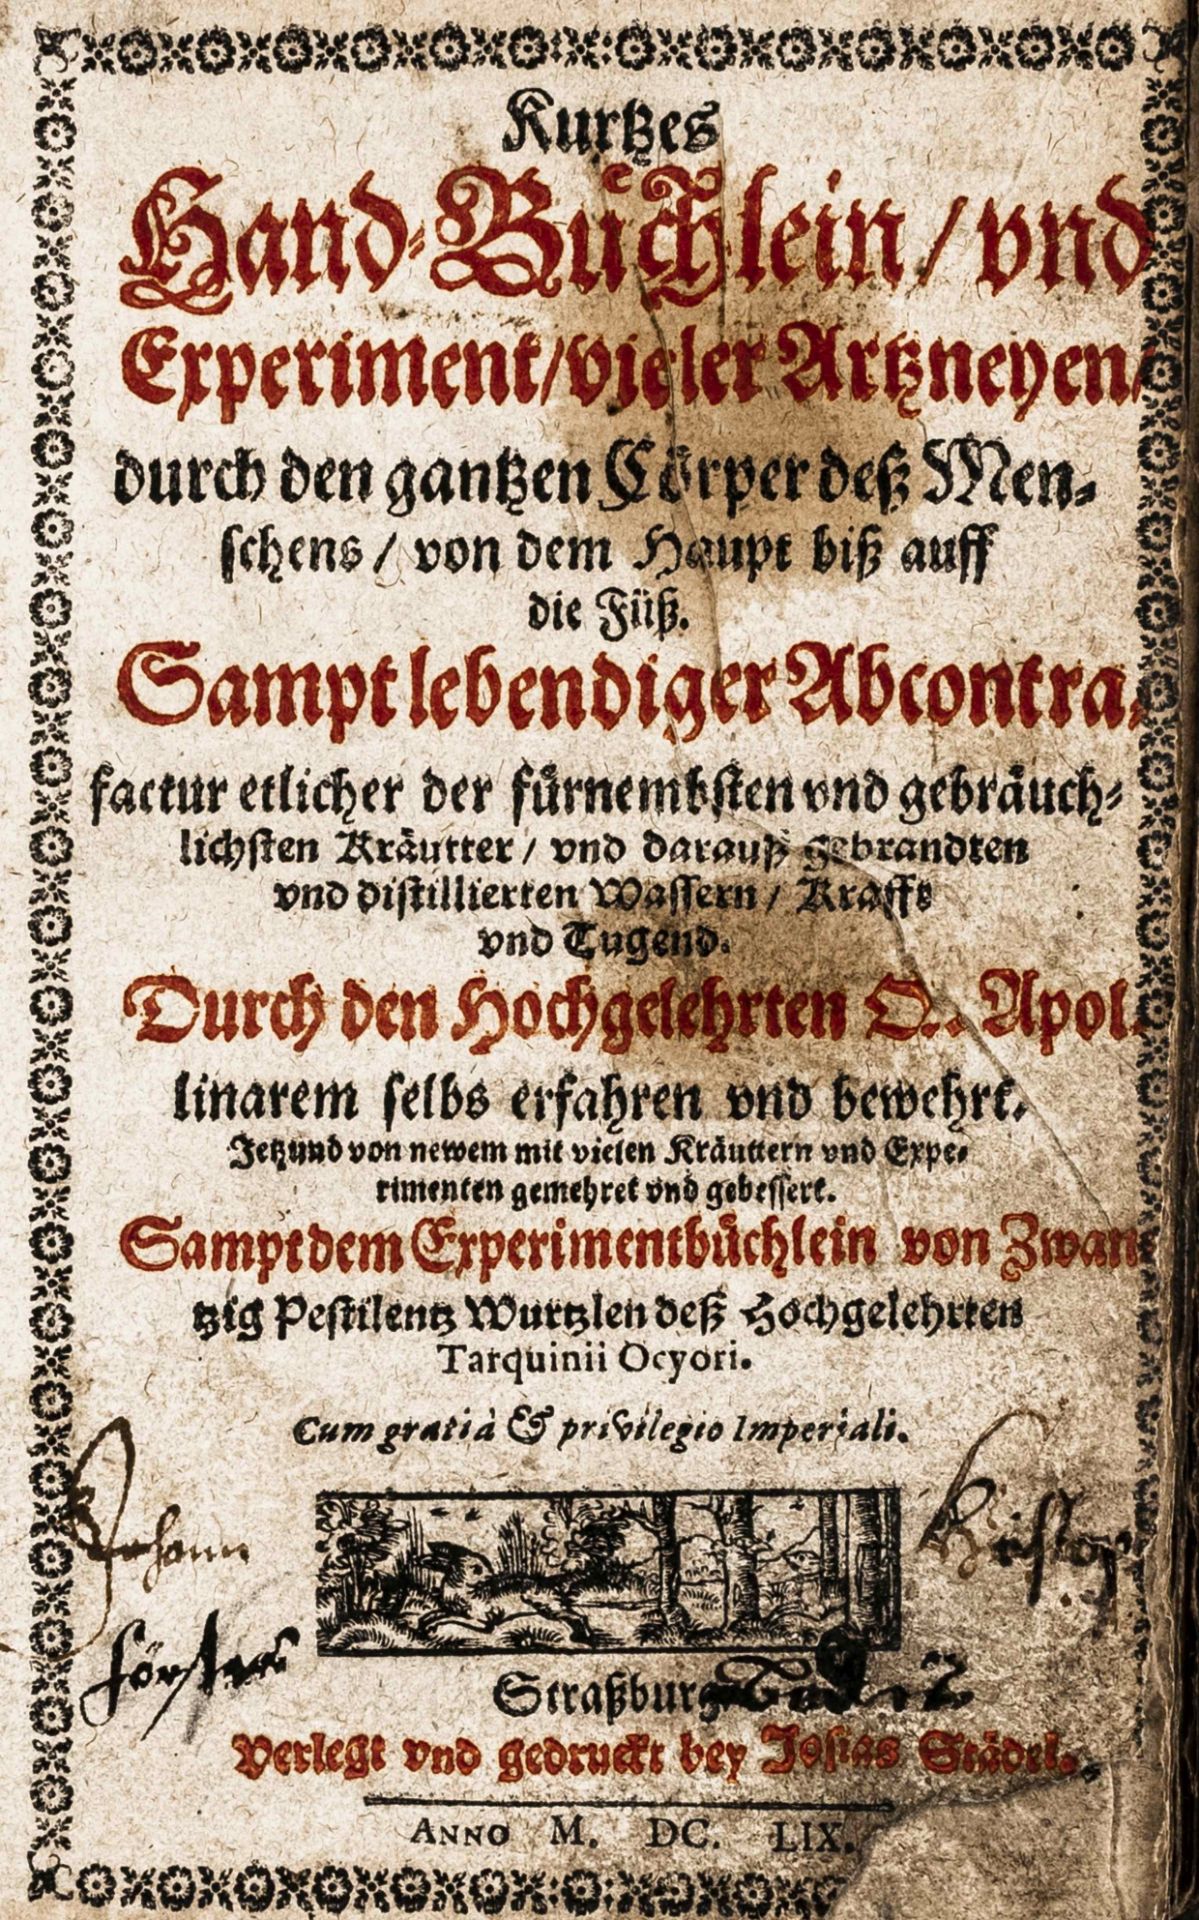 Kurtzes
Hand-Buͤchlein / vnd
Experiment / vieler Artzneyen /
durch den gantzen Coͤrper deß Men-
schens / von dem Haupt biß auff
die Füß.
Sampt lebendiger Abcontra-
factur etlicher der fuͤrnembsten vnd gebraͤuch-
lichsten Kraͤutter / vnd darauß gebrandten
vnd distillierten Wassern / Krafft
vnd Tugend.
Durch den Hochgelehrten Q. Apol-
linarem selbs erfahren vnd bewehrt.
Jetzund von newem mit vielen Kraͤuttern vnd Expe-
rimenten gemehret vnd gebessert.
Sampt dem Experimentbuͤchlein von Zwan
tzig Pestilentz Wurtzlen deß Hochgelehrten
Tarquinii Ocyori.
Cum gratiâ & privilegio Imperiali.
Johann
Förster
Straßburg
Verlegt vnd gedruckt bey Josias Städel.
ANNO M. DC. LIX.